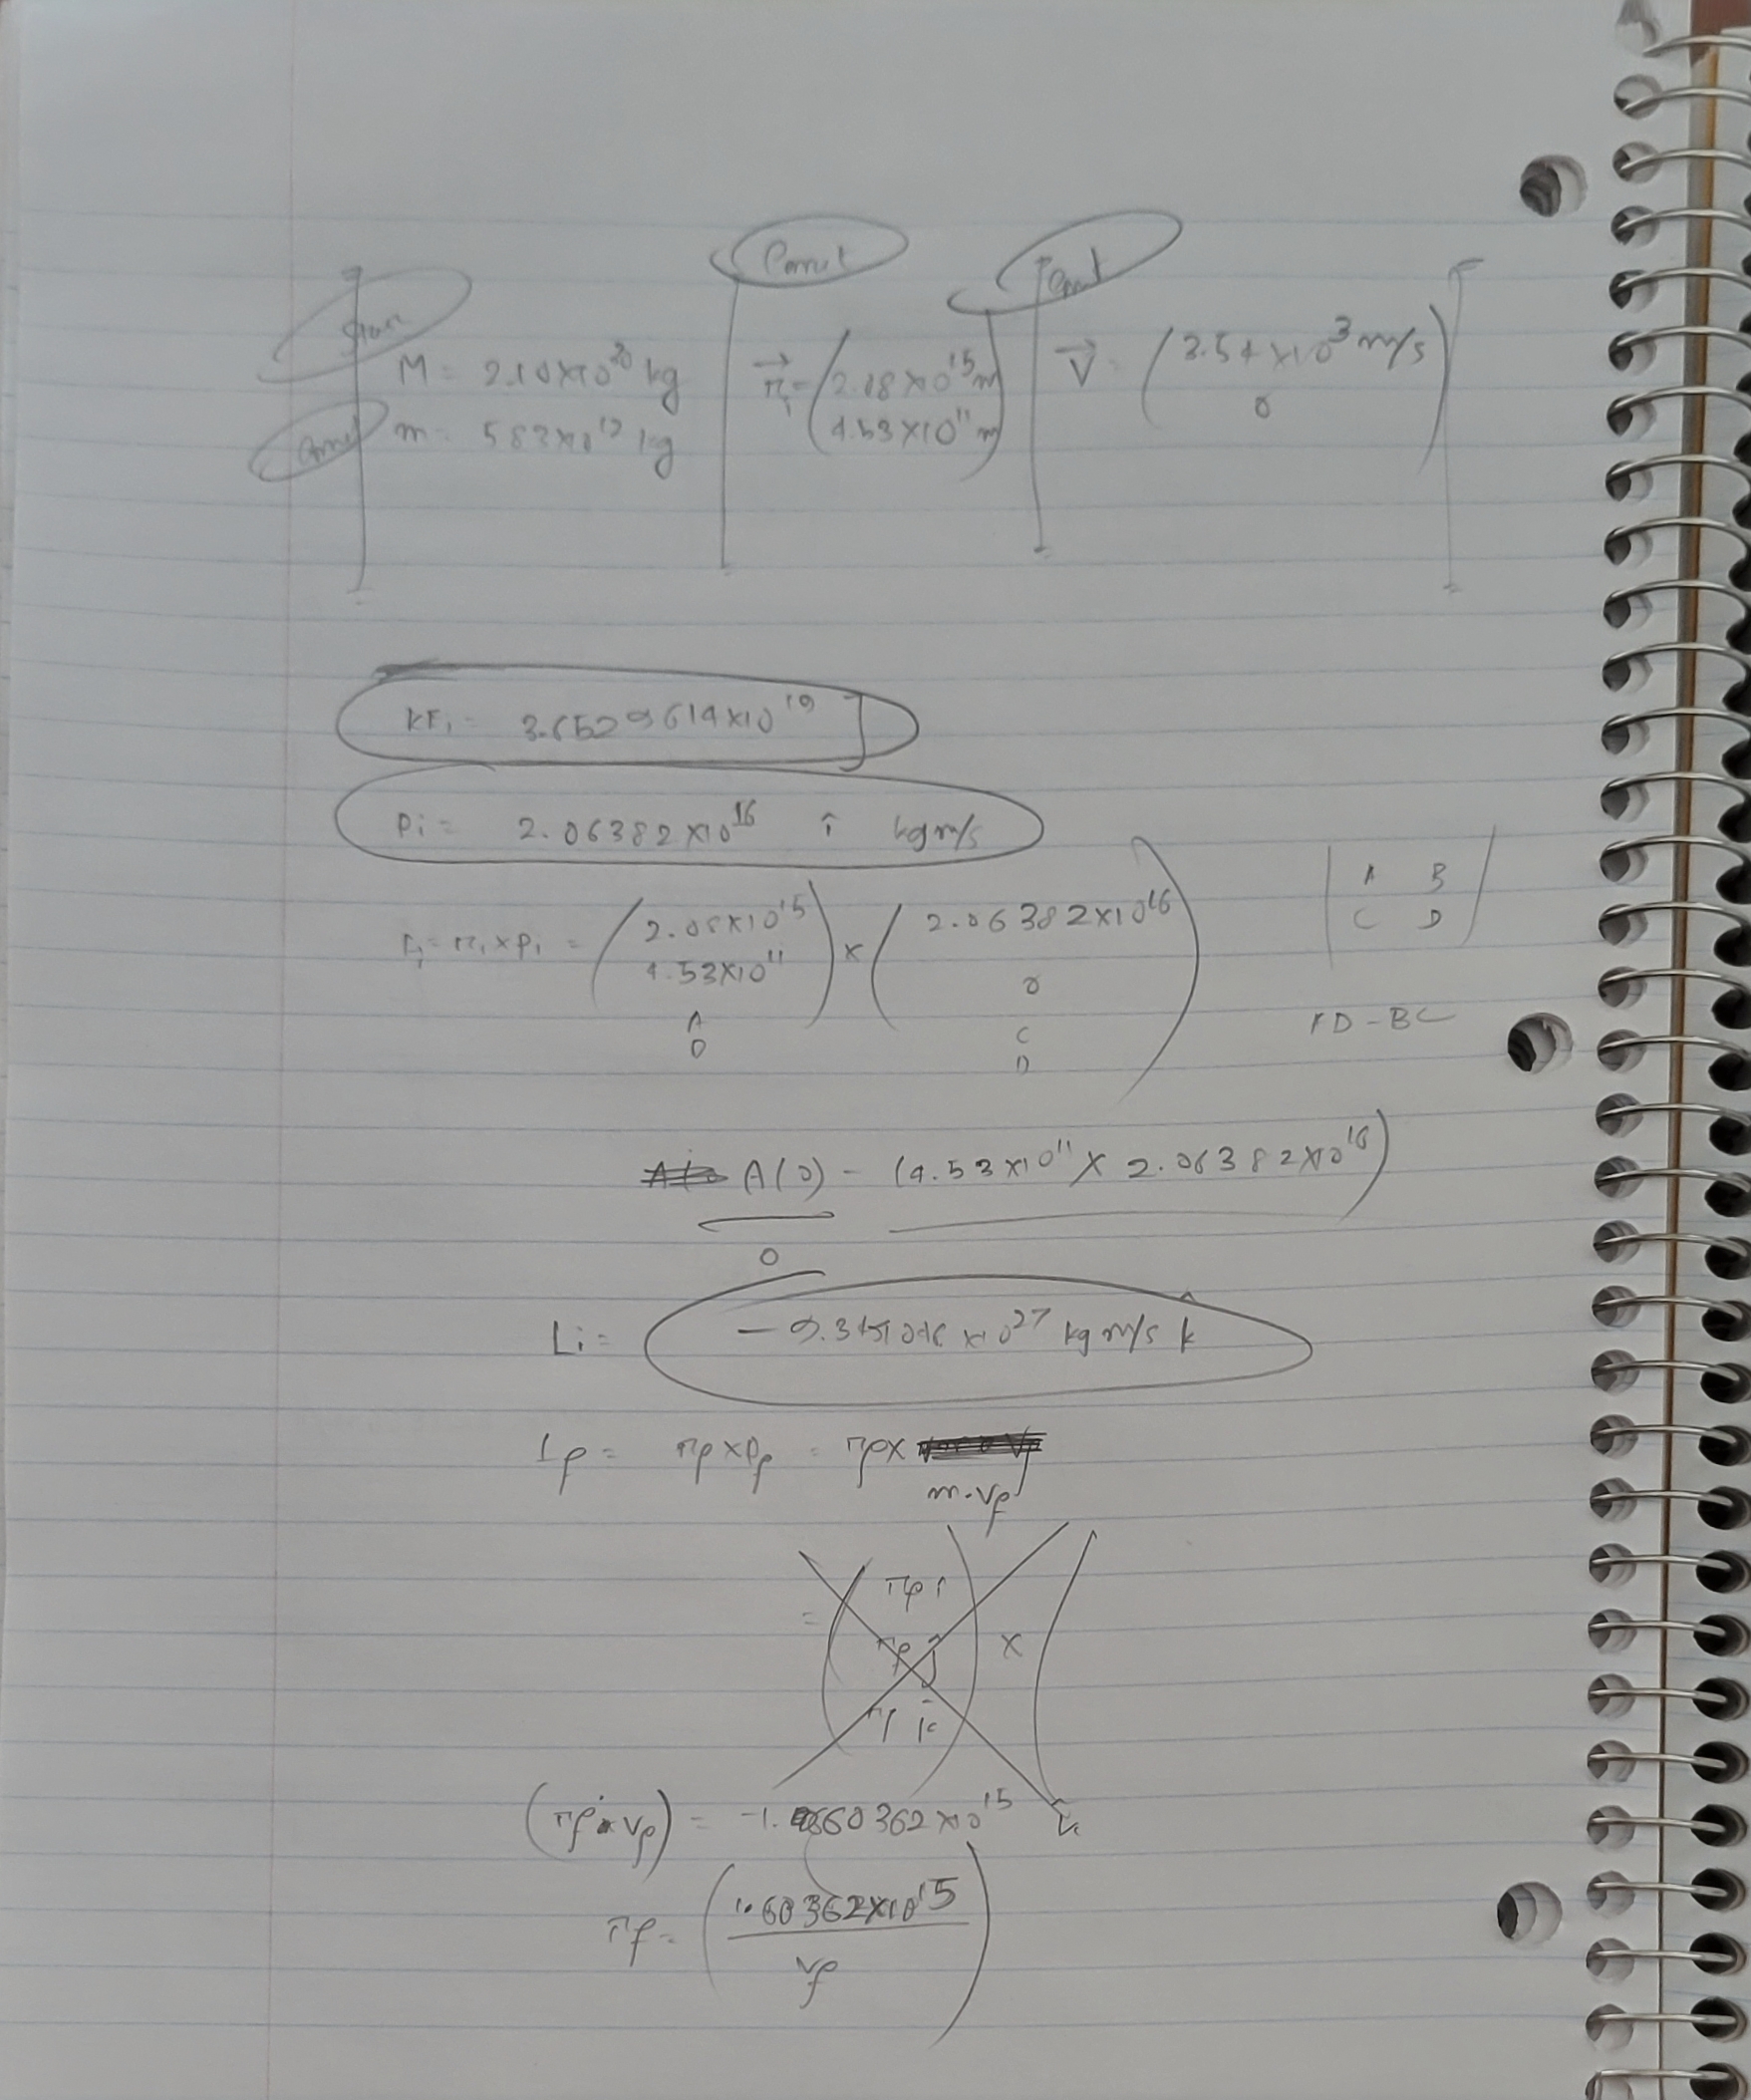 Star
M = 2.10×10³⁰ kg
m = 5.83×10¹² kg
r⃗ᵢ = (2.08×10¹⁵ m
4.53×10¹¹ m)
V⃗ = (3.54×10³ m/s
0)
KEᵢ = 3.6529614×10¹⁹ J
Pᵢ = 2.06382×10¹⁶ î kg m/s
Lᵢ = rᵢ × pᵢ = (2.08×10¹⁵
4.53×10¹¹) × (2.06382×10¹⁶
0)
A B
C D
A
C
D
AD - BC
A(0) - (4.53×10¹¹ × 2.06382×10¹⁶)
0
Li = -9.3491046×10²⁷ kg m/s k̂
Lf = rf × pf = rf ×
m·vf
= (rf î
rf ĵ
rf k̂) × (
(rf × vf) = -1.60362×10¹⁵ k̂
rf = (1.60362×10¹⁵
vf)